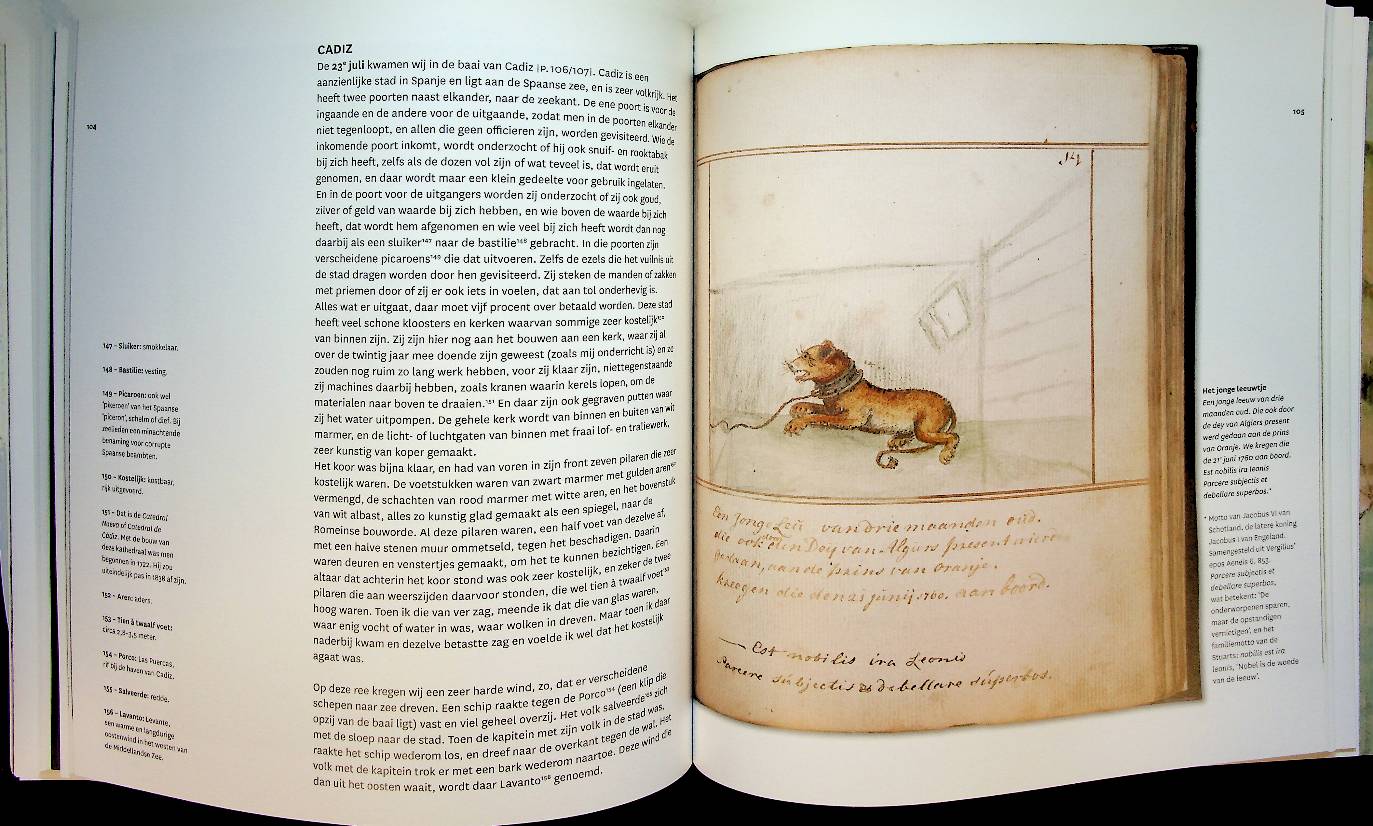 104
CADIZ
De 23e juli kwamen wij in de baai van Cadiz [P. 106/107]. Cadiz is een
aanzienlijke stad in Spanje en ligt aan de Spaanse zee, en is zeer volkrijk. Het
heeft twee poorten naast elkander, naar de zeekant. De ene poort is voor de
ingaande en de andere voor de uitgaande, zodat men in de poorten elkander
niet tegenloopt, en allen die geen officieren zijn, worden gevisiteerd. Wie de
inkomende poort inkomt, wordt onderzocht of hij ook snuif- en rooktabak
bij zich heeft, zelfs als de dozen vol zijn of wat teveel is, dat wordt eruit
genomen, en daar wordt maar een klein gedeelte voor gebruik ingelaten.
En in de poort voor de uitgangers worden zij onderzocht of zij ook goud,
zilver of geld van waarde bij zich hebben, en wie boven de waarde bij zich
heeft, dat wordt hem afgenomen en wie veel bij zich heeft wordt dan nog
daarbij als een sluiker147 naar de bastilie148 gebracht. In die poorten zijn
verscheidene picaroens149 die dat uitvoeren. Zelfs de ezels die het vuilnis uit
de stad dragen worden door hen gevisiteerd. Zij steken de manden of zakken
met priemen door of zij er ook iets in voelen, dat aan tol onderhevig is.
Alles wat er uitgaat, daar moet vijf procent over betaald worden. Deze stad
heeft veel schone kloosters en kerken waarvan sommige zeer kostelijk150
van binnen zijn. Zij zijn hier nog aan het bouwen aan een kerk, waar zij al
over de twintig jaar mee doende zijn geweest (zoals mij onderricht is) en ze
zouden nog ruim zo lang werk hebben, voor zij klaar zijn, niettegenstaande
zij machines daarbij hebben, zoals kranen waarin kerels lopen, om de
materialen naar boven te draaien.151 En daar zijn ook gegraven putten waar
zij het water uitpompen. De gehele kerk wordt van binnen en buiten van wit
marmer, en de licht- of luchtgaten van binnen met fraai lof- en traliewerk,
zeer kunstig van koper gemaakt.
Het koor was bijna klaar, en had van voren in zijn front zeven pilaren die zeer
kostelijk waren. De voetstukken waren van zwart marmer met gulden aren152
vermengd, de schachten van rood marmer met witte aren, en het bovenstuk
van wit albast, alles zo kunstig glad gemaakt als een spiegel, naar de
Romeinse bouworde. Al deze pilaren waren, een half voet van dezelve af,
met een halve stenen muur ommetseld, tegen het beschadigen. Daarin
waren deuren en venstertjes gemaakt, om het te kunnen bezichtigen. Een
altaar dat achterin het koor stond was ook zeer kostelijk, en zeker de twee
pilaren die aan weerszijden daarvoor stonden, die wel tien à twaalf voet153
hoog waren. Toen ik die van ver zag, meende ik dat die van glas waren,
waar enig vocht of water in was, waar wolken in dreven. Maar toen ik daar
naderbij kwam en dezelve betastte zag en voelde ik wel dat het kostelijk
agaat was.
Op deze ree kregen wij een zeer harde wind, zo, dat er verscheidene
schepen naar zee dreven. Een schip raakte tegen de Porco154 (een klip die
opzij van de baai ligt) vast en viel geheel overzij. Het volk salveerde155 zich
met de sloep naar de stad. Toen de kapitein met zijn volk in de stad was,
raakte het schip wederom los, en dreef naar de overkant tegen de wal. Het
volk met de kapitein trok er met een bark wederom naartoe. Deze wind die
dan uit het oosten waait, wordt daar Lavanto156 genoemd.
147 – Sluiker: smokkelaar.
148 – Bastilie: vesting.
149 – Picaroen: ook wel
'pikeroen' van het Spaanse
'piceron', schelm of dief. Bij
zeelieden een minachtende
benaming voor corrupte
Spaanse beambten.
150 – Kostelijk: kostbaar,
rijk uitgevoerd.
151 – Dat is de Catedral
Nueva of Catedral de
Cádiz. Met de bouw van
deze kathedraal was men
begonnen in 1722. Hij zou
uiteindelijk pas in 1838 af zijn.
152 – Aren: aders.
153 – Tien à twaalf voet:
circa 2,8-3,5 meter.
154 – Porco: Las Puercas,
rif bij de haven van Cadiz.
155 – Salveerde: redde.
156 – Lavanto: Levante,
een warme en langdurige
oostenwind in het westen van
de Middellandse Zee.
105
Een Jonge Leeu van drie maanden oud.
die ook door den Dey van Algiers present
gedaan, aan de prins van oranje.
kreegen die den 21 junij. 1760. aan boord.
— Est nobilis ira Leonis
Parcere subjectis & debellare superbos.
Het jonge leeuwtje
Een jonge leeuw van drie
maanden oud. Die ook door
de dey van Algiers present
werd gedaan aan de prins
van Oranje. We kregen die
de 21e juni 1760 aan boord.
Est nobilis ira leonis
Parcere subjectis et
debellare superbos.*
* Motto van Jacobus VI van
Schotland, de latere koning
Jacobus I van Engeland.
Samengesteld uit Vergilius'
epos Aeneis 6, 853.
Parcere subjectis et
debellare superbos,
wat betekent: 'De
onderworpenen sparen,
maar de opstandigen
vernietigen', en het
familiemotto van de
Stuarts: nobilis est ira
leonis, 'Nobel is de woede
van de leeuw'.